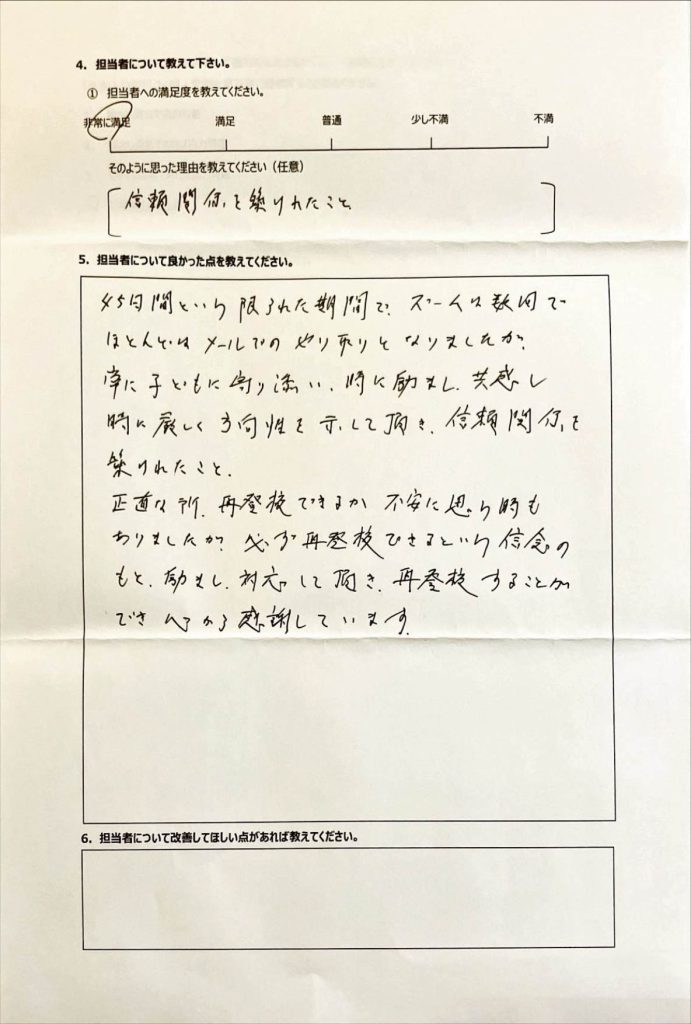 4. 担当者について教えて下さい。
① 担当者への満足度を教えてください。
非常に満足 満足 普通 少し不満 不満
そのように思った理由を教えてください（任意）
信頼関係を築けれたこと
5. 担当者について良かった点を教えてください。
45日間という限られた期間で、ズームは数回で
ほとんどはメールでのやり取りとなりましたが、
常に子どもに寄り添い、時に励まし、共感し
時に厳しく方向性を示して頂き、信頼関係を
築けれたこと。
正直な所、再登校できるか不安に思う時も
ありましたが、必ず再登校できるという信念の
もと、励まし、対応して頂き、再登校することが
でき 感謝しています。
6. 担当者について改善してほしい点があれば教えてください。